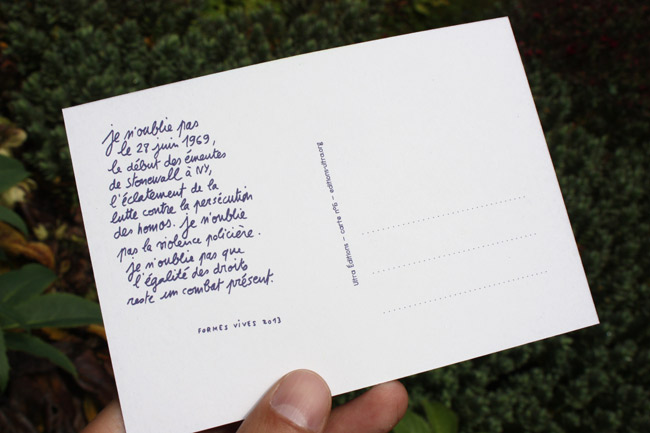 je n'oublie pas
le 27 juin 1969,
le début des émeutes
de Stonewall à NY,
l'éclatement de la
lutte contre la persécution
des homos. je n'oublie
pas la violence policière.
je n'oublie pas que
l'égalité des droits
reste un combat présent.
FORMES VIVES 2013
ultra éditions – carte n°6 – editionsultra.org